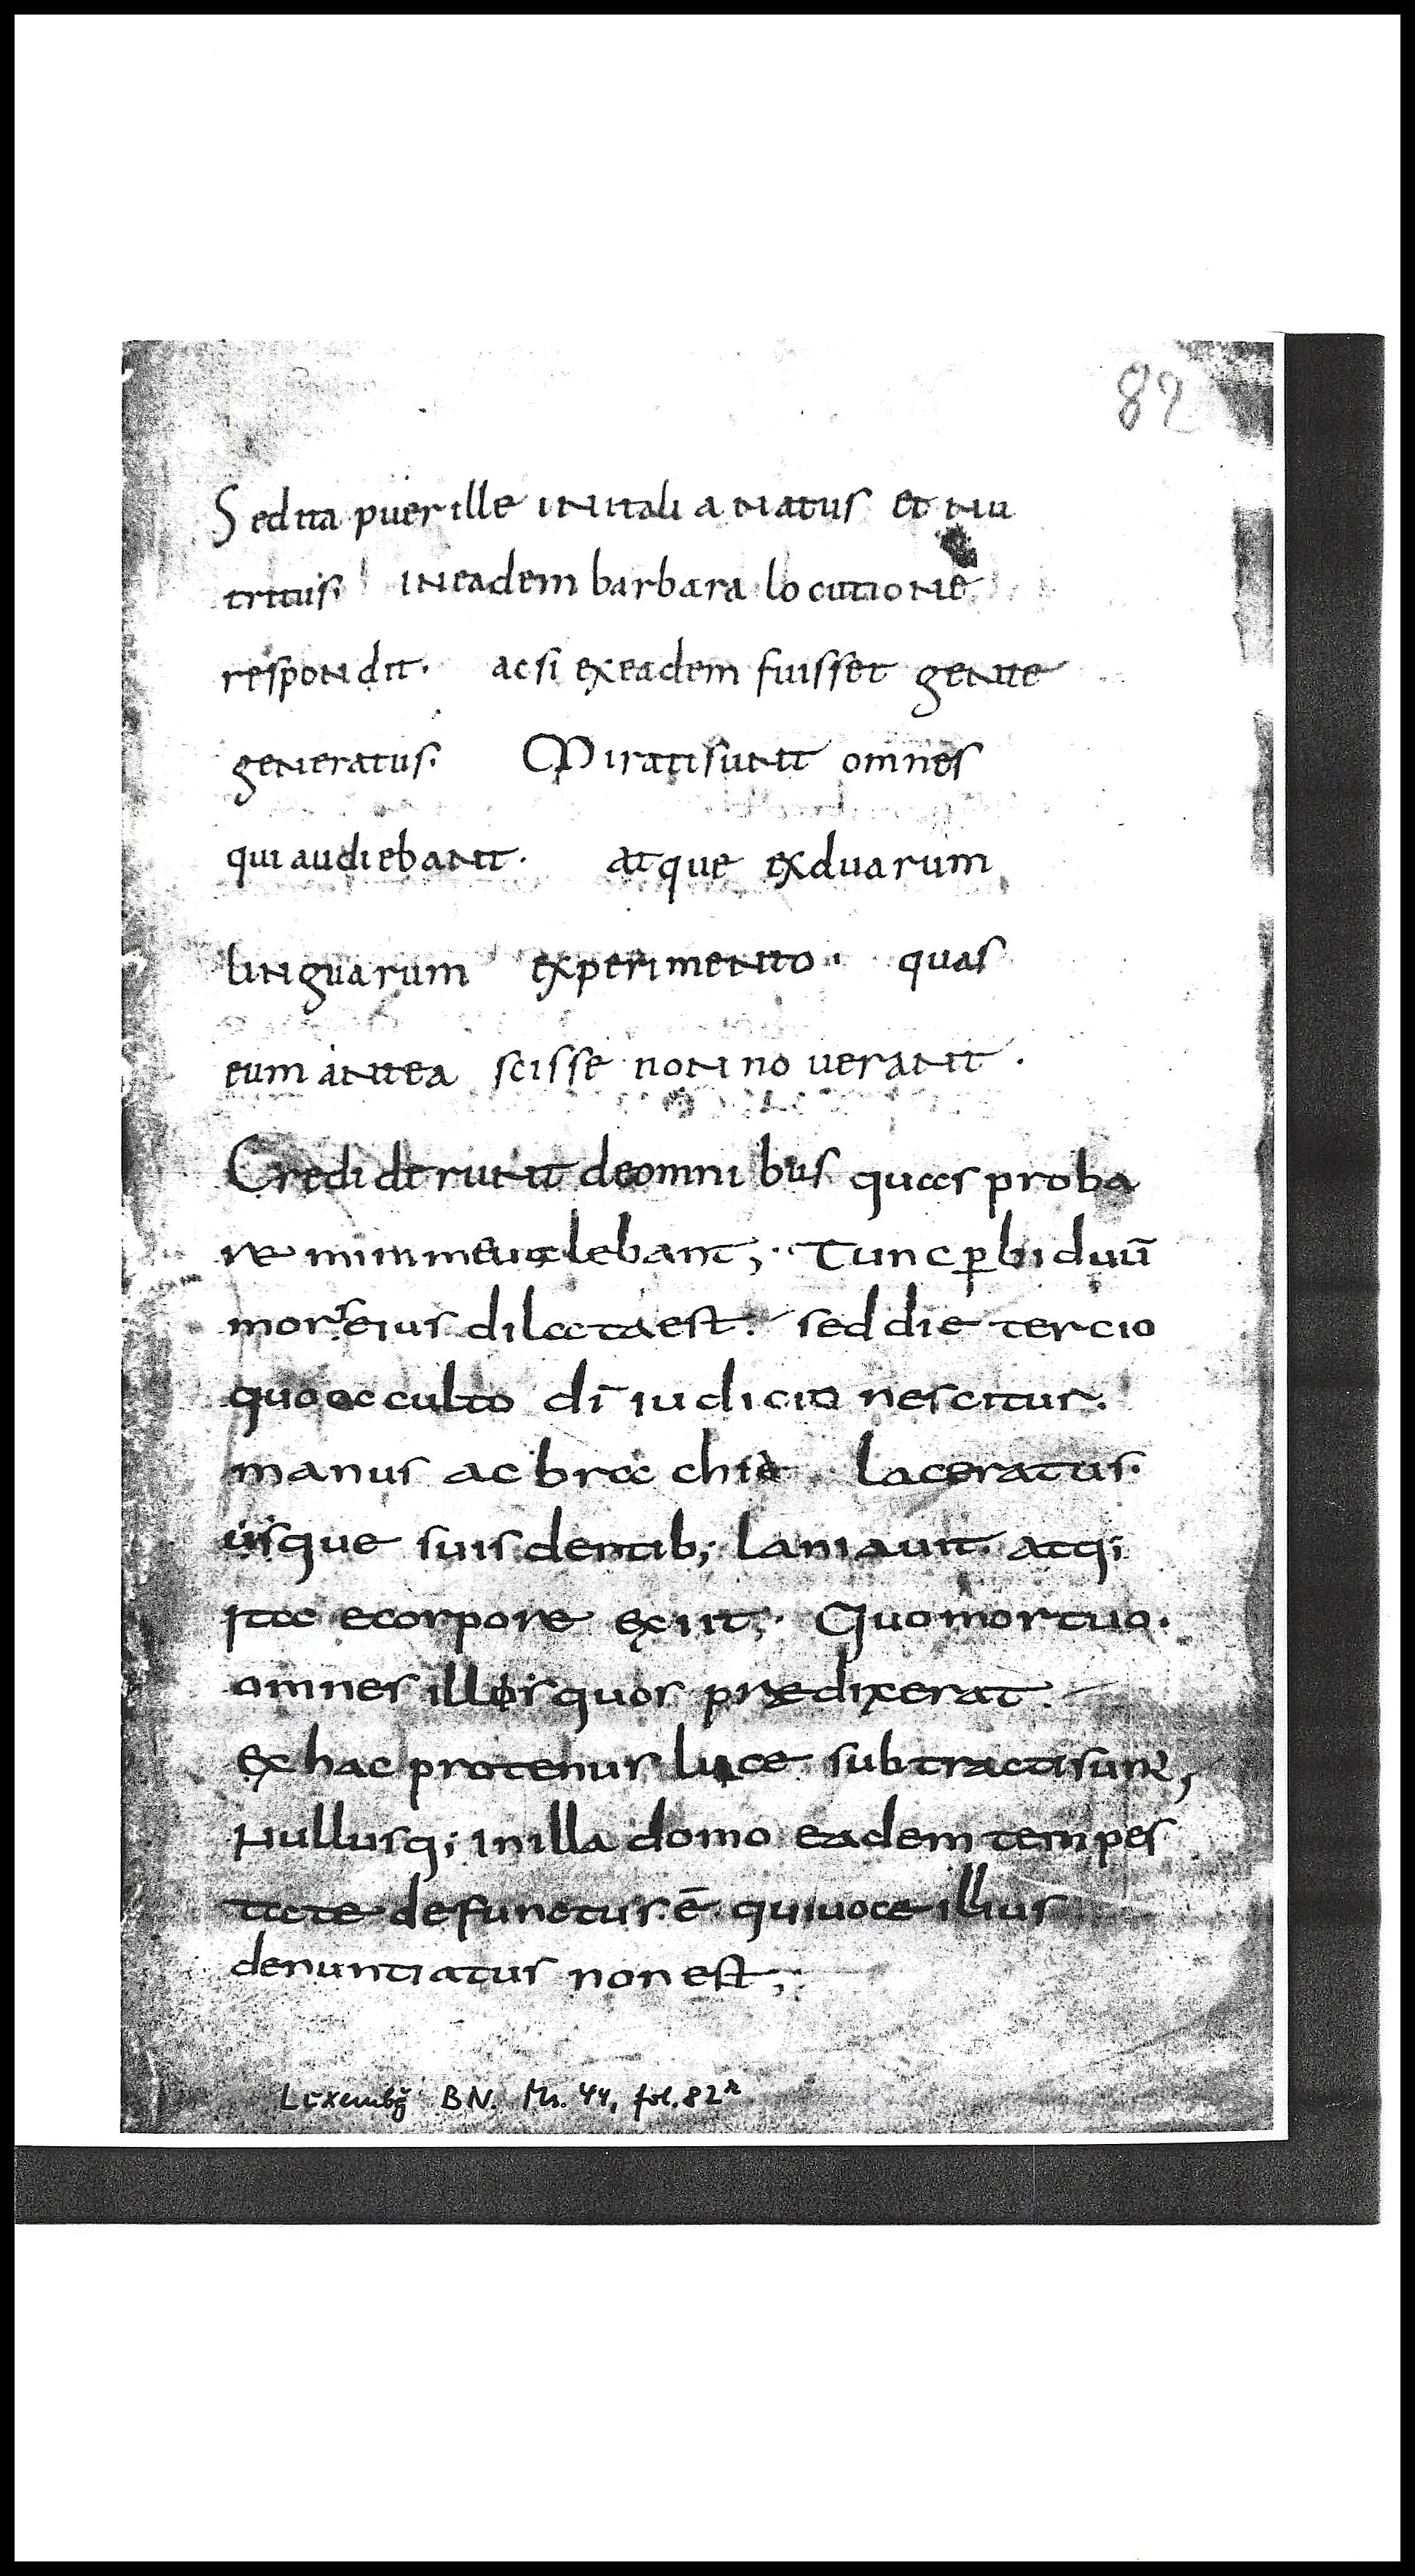 82
Sed ita puer ille in itali a natus et nu
tritus. in eadem barbara locutione
respondit. ac si ex eadem fuisset gente
generatus. Mirati sunt omnes
qui audiebant. atque ex duarum
linguarum experimento. quas
eum antea scisse non no uerant.
Crediderunt de omnibus quas proba
re minime ualebant; Tunc ꝑ biduū
mors eius dilata est. sed die tercio
quo occulto dī iudicio nescitur.
manus ac brachia laceratus.
usque suis dentib; laniauit. atq;
ita e corpore exiit; Quo mortuo.
omnes illos quos prædixerat.
ex hac protenus luce subtracti sunt;
Nullusq; in illa domo eadem tempes
tate defunctus ē. qui uoce illius
denuntiatus non est;
Luxembg BN. Ms. 44, fol. 82r